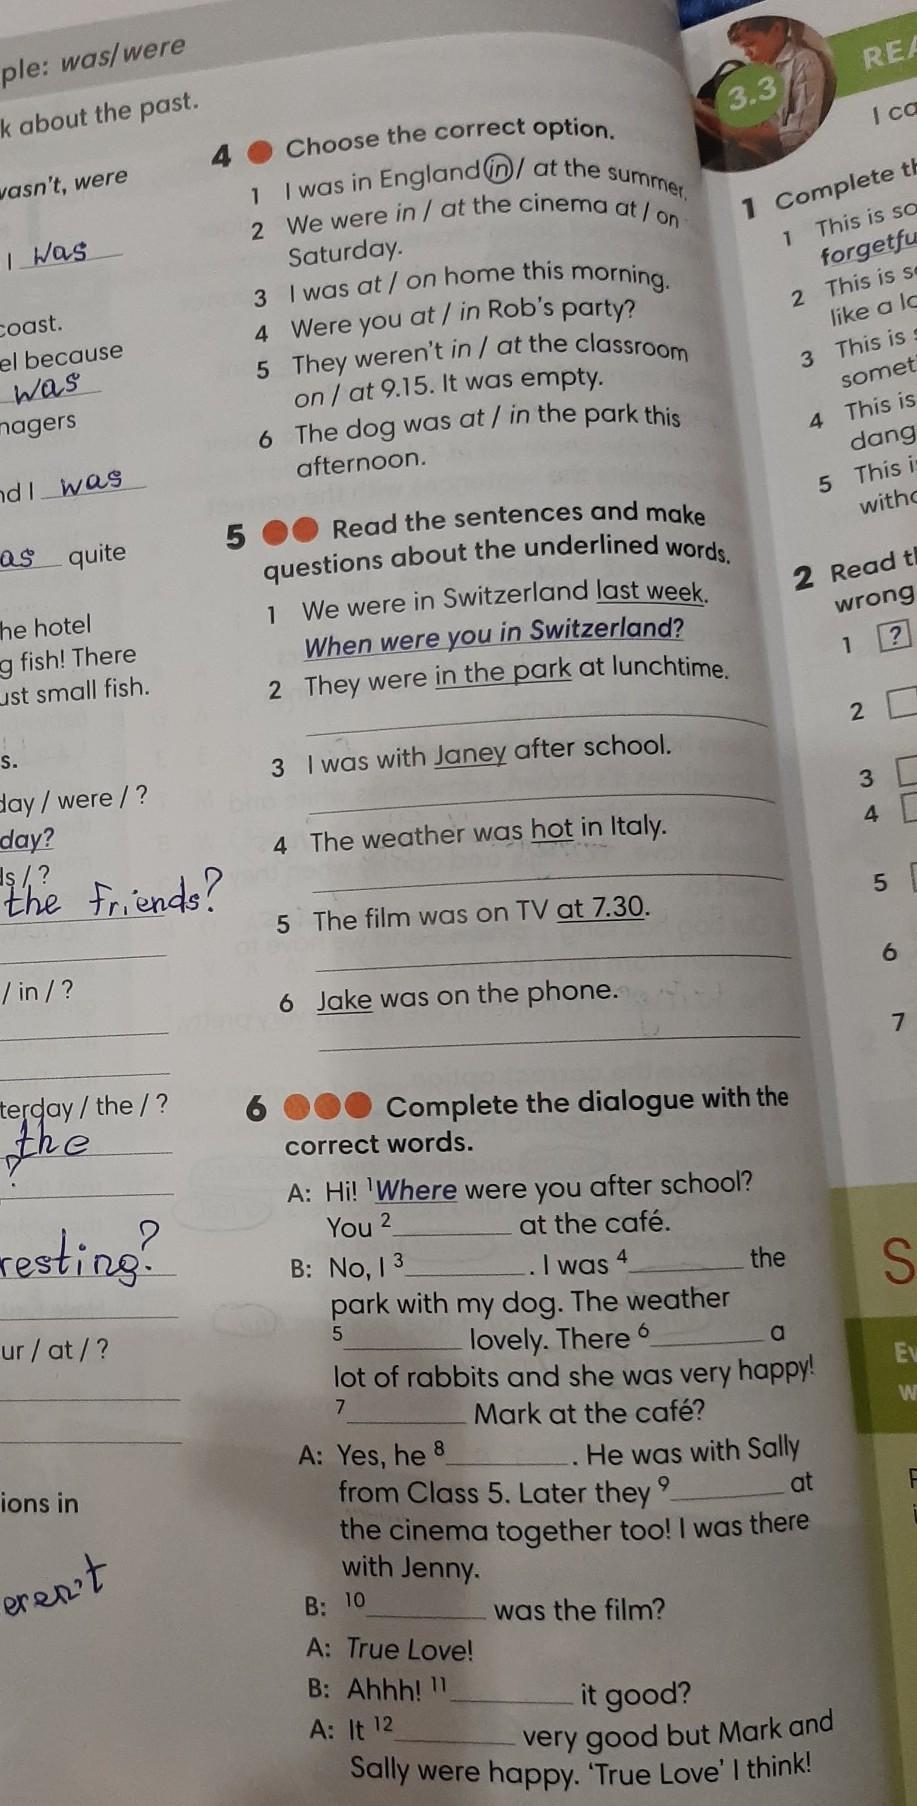 ple: was/were
k about the past.
wasn't, were
I was
coast.
el because
was
nagers
nd I was
as quite
he hotel
g fish! There
ust small fish.
s.
day / were / ?
day?
ds / ?
the friends?
/ in / ?
terday / the / ?
the
?
resting?
ur / at / ?
ions in
eren't
4 Choose the correct option.
1 I was in England in / at the summer.
2 We were in / at the cinema at / on
Saturday.
3 I was at / on home this morning.
4 Were you at / in Rob's party?
5 They weren't in / at the classroom
on / at 9.15. It was empty.
6 The dog was at / in the park this
afternoon.
5 Read the sentences and make
questions about the underlined words.
1 We were in Switzerland last week.
When were you in Switzerland?
2 They were in the park at lunchtime.
3 I was with Janey after school.
4 The weather was hot in Italy.
5 The film was on TV at 7.30.
6 Jake was on the phone.
6 Complete the dialogue with the
correct words.
A: Hi! 1 Where were you after school?
You 2 at the café.
B: No, I 3 . I was 4 the
park with my dog. The weather
5 lovely. There 6 a
lot of rabbits and she was very happy!
7 Mark at the café?
A: Yes, he 8 . He was with Sally
from Class 5. Later they 9 at
the cinema together too! I was there
with Jenny.
B: 10 was the film?
A: True Love!
B: Ahhh! 11 it good?
A: It 12 very good but Mark and
Sally were happy. 'True Love' I think!
3.3
REA
I ca
1 Complete th
1 This is so
forgetfu
2 This is s
like a lo
3 This is
somet
4 This is
dang
5 This i
witho
2 Read t
wrong
1 ?
2
3
4
5
6
7
S
Ev
w